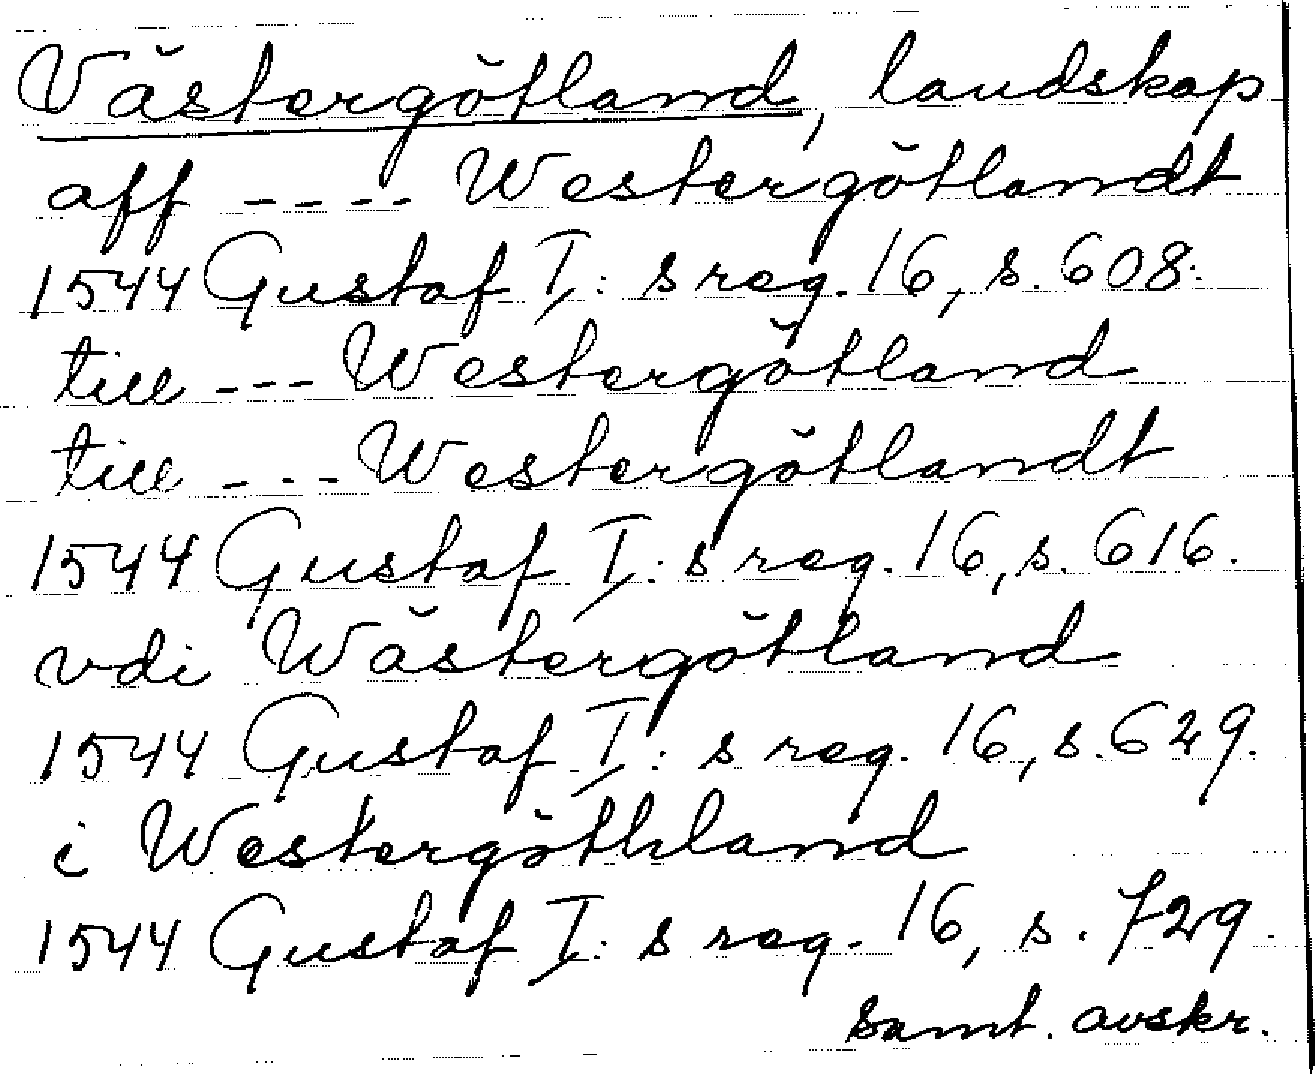 Västergötland, landskap
aff ---- Westergötlandt
1544 Gustaf I: s reg. 16, s. 608.
till --- Westergötland
till --- Westergötlandt
1544 Gustaf I: s reg. 16, s. 616.
vdi Wästergötland
1544 Gustaf I: s reg. 16, s. 629.
i Westergöthland
1544 Gustaf I: s reg. 16, s. 729.
samt. avskr.